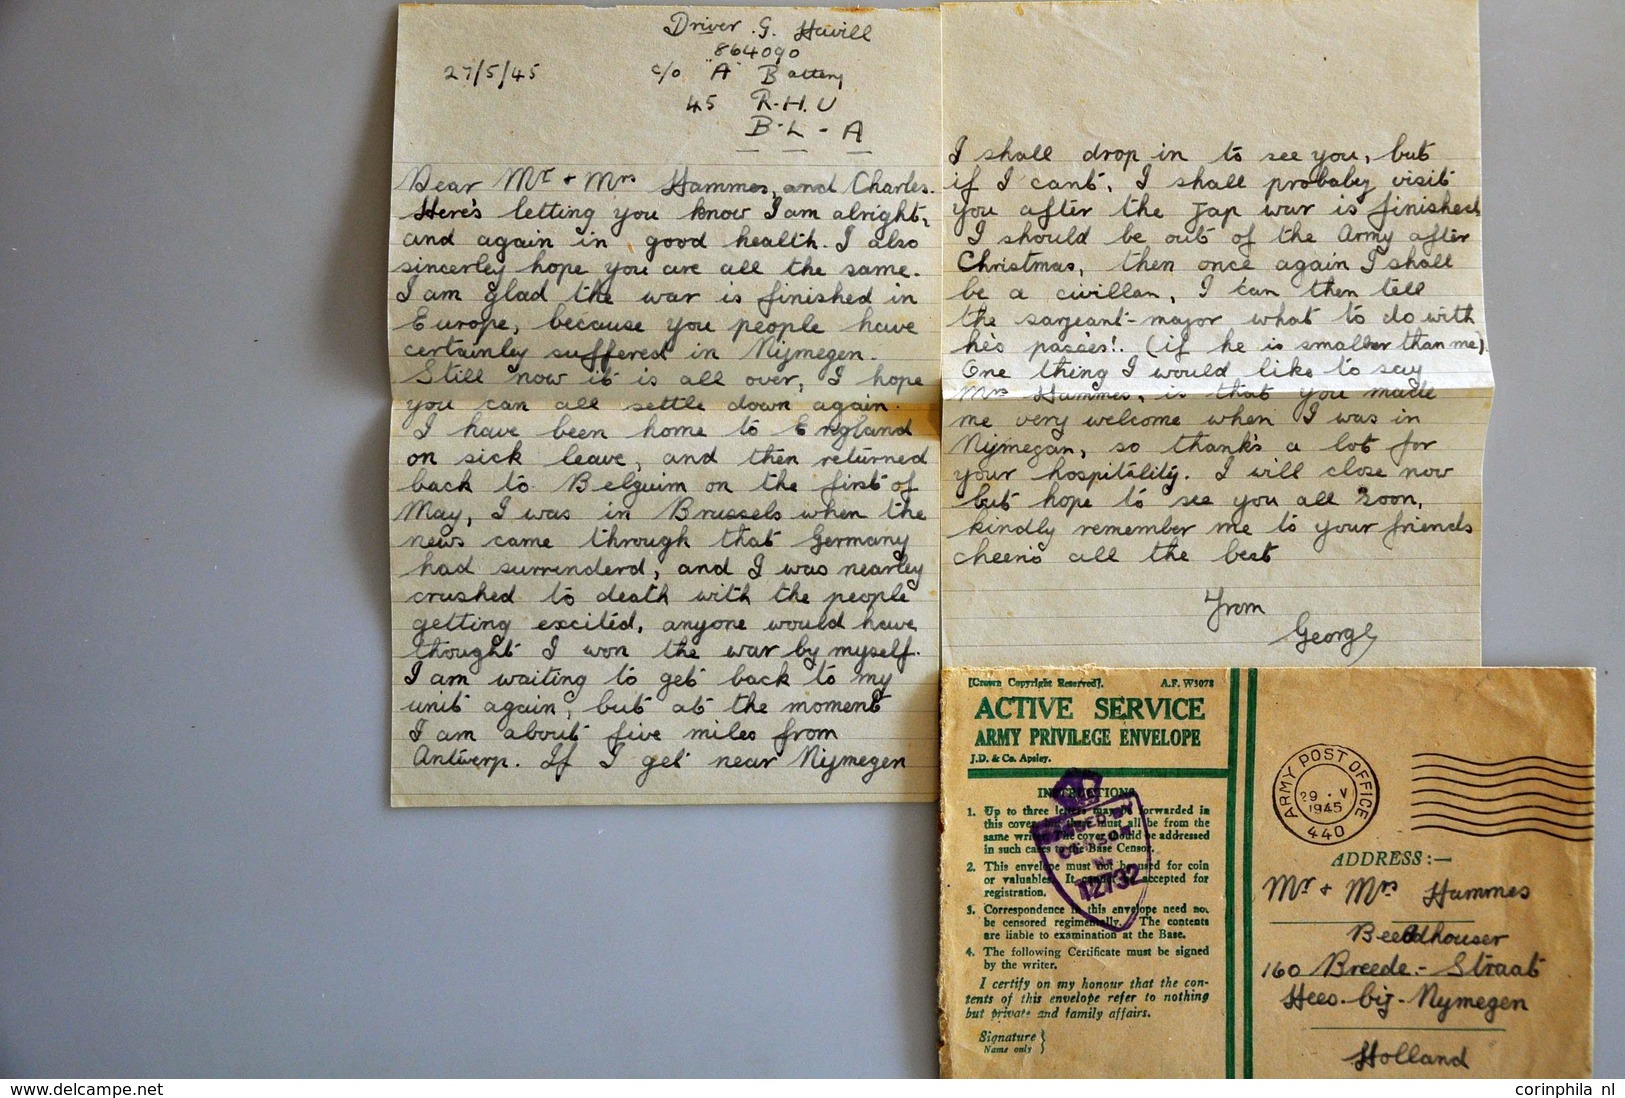 Driver G. Havill
864090
27/5/45 c/o "A" Battery
45 R.H.U
B-L-A
Dear Mr + Mrs Hammes, and Charles.
Here's letting you know I am alright,
and again in good health. I also
sincerley hope you are all the same.
I am glad the war is finished in
Europe, because you people have
certainley suffered in Nijmegen.
Still now it is all over, I hope
you can all settle down again.
I have been home to England
on sick leave, and then returned
back to Belguim on the first of
May, I was in Brussels when the
news came through that Germany
had surrinderd, and I was nearley
crushed to death with the people
getting excited, anyone would have
thought I won the war by myself.
I am waiting to get back to my
unit again, but at the moment
I am about five miles from
Antwerp. If I get near Nijmegen
I shall drop in to see you, but
if I cant, I shall probaby visit
you after the Jap war is finished
I should be out of the Army after
Christmas, then once again I shall
be a civillan, I can then tell
the sargeant-major what to do with
he's passes!. (if he is smaller than me).
One thing I would like to say
Mrs Hammes, is that you made
me very welcome when I was in
Nijmegan, so thank's a lot for
your hospitality. I will close now
but hope to see you all soon,
kindly remember me to your friends
cheerio all the best
From
George
[Crown Copyright Reserved]. A.F. W3078
ACTIVE SERVICE
ARMY PRIVILEGE ENVELOPE
J.D. & Co. Apsley.
INSTRUCTIONS
1. Up to three letters may be forwarded in
this cover, but these must all be from the
same writer. The cover should be addressed
in such cases to the Base Censor.
2. This envelope must not be used for coin
or valuables. It cannot be accepted for
registration.
3. Correspondence in this envelope need not
be censored regimentally. The contents
are liable to examination at the Base.
4. The following Certificate must be signed
by the writer.
I certify on my honour that the con-
tents of this envelope refer to nothing
but private and family affairs.
Signature
Name only
PASSED BY
CENSOR
No
12732
ARMY POST OFFICE
29 . V
1945
440
ADDRESS :—
Mr + Mrs Hammes
Beeldhouser
160 Breede - Straat
Hees-bij-Nymegen
Holland
www.delcampe.net
corinphila nl